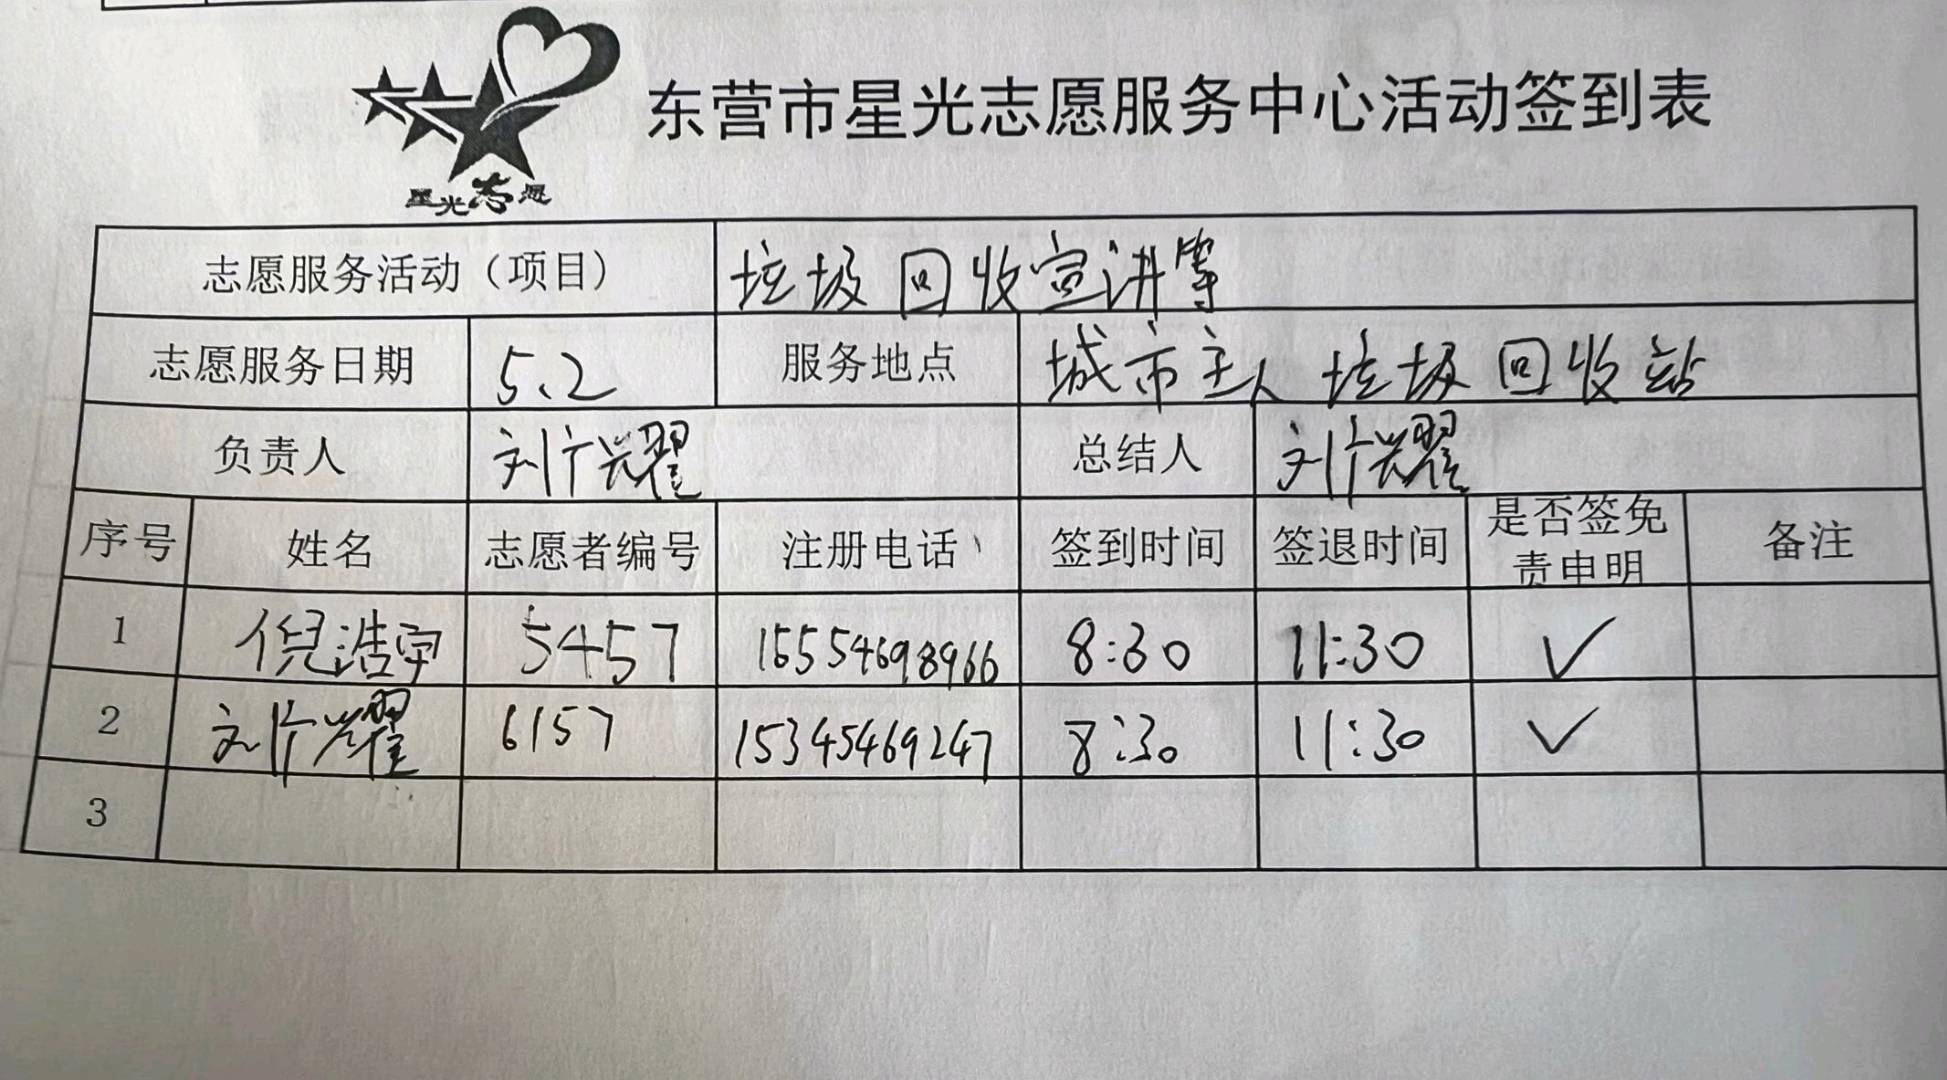 星光志愿
东营市星光志愿服务中心活动签到表
志愿服务活动（项目） 垃圾回收宣讲等
志愿服务日期 5.2 服务地点 城市主人垃圾回收站
负责人 刘广兴耀 总结人 刘广兴耀
序号 姓名 志愿者编号 注册电话 签到时间 签退时间 是否签免责申明 备注
1 倪浩宇 5457 15554698966 8:30 11:30 ✓
2 刘广兴耀 6157 15345469247 8:30 11:30 ✓
3